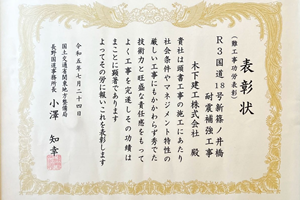 表彰状
(難工事功労表彰)
R3国道18号新篠ノ井橋
耐震補強工事
木下建工株式会社 殿
貴社は頭書工事の施工にあたり
社会条件やマネジメント特性の
厳しい工事にかかわらず秀でた
技術力と旺盛な責任感をもって
よく工事を完遂しその功績は
まことに顕著であります
よってその労に報いこれを表彰します
令和五年七月二十四日
国土交通省関東地方整備局
長野国道事務所長 小澤 知幸